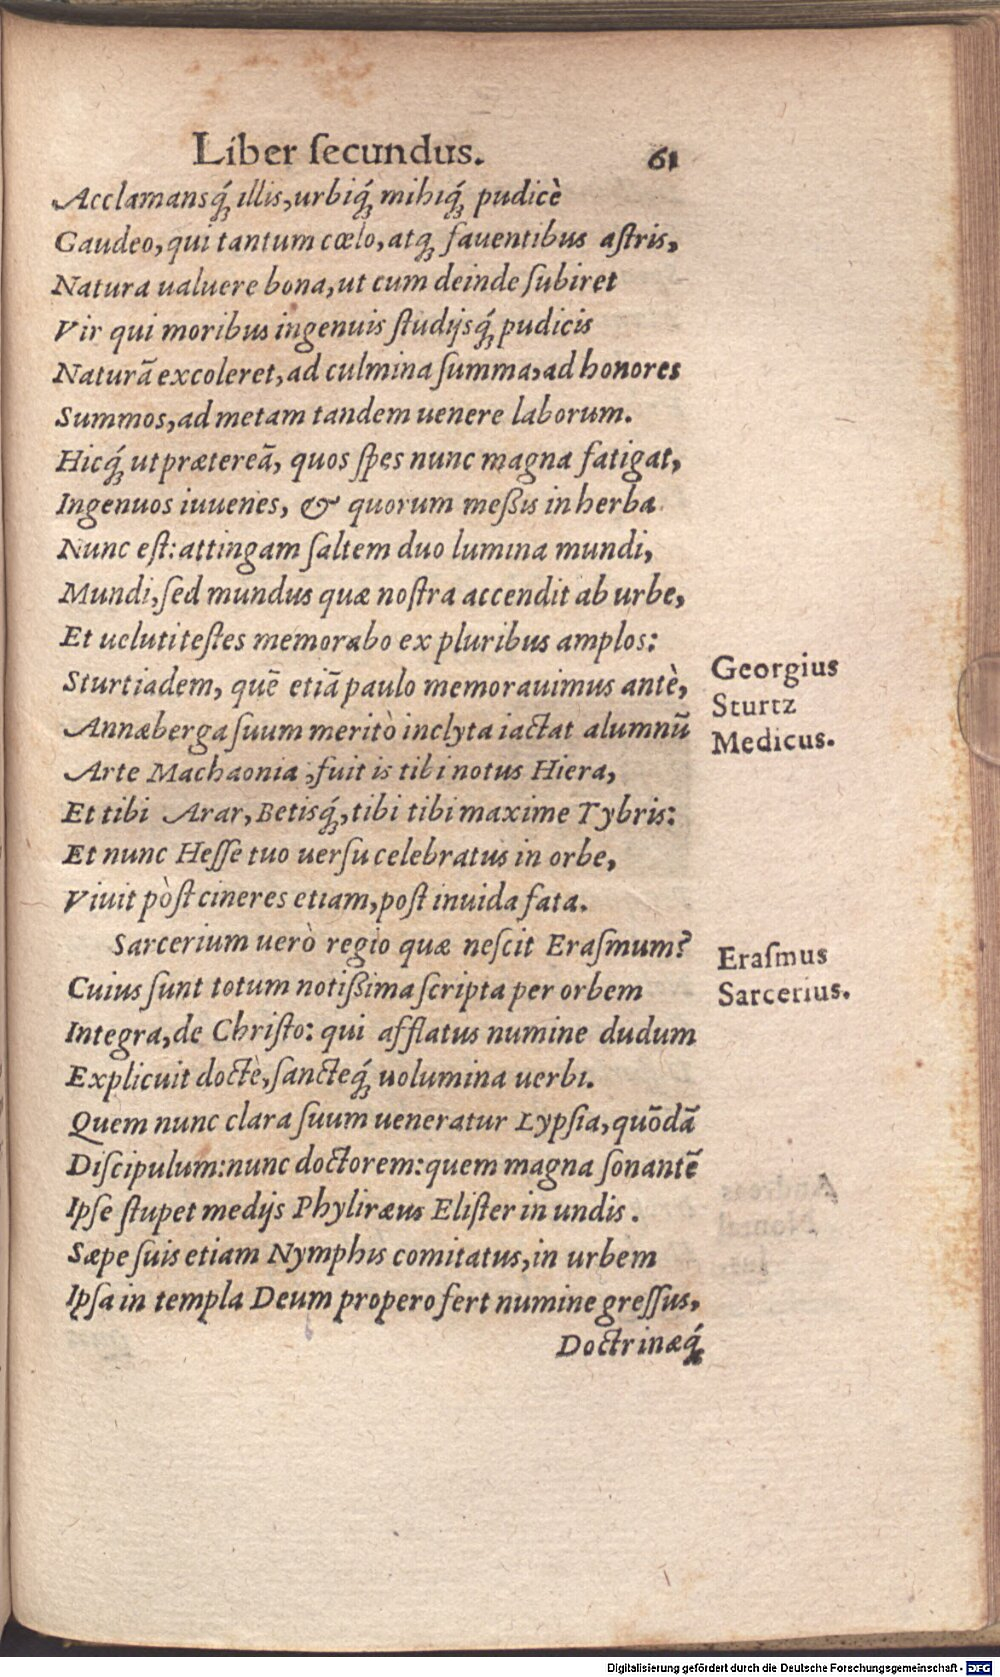 Liber ſecundus. 61
Acclamansq́ꝫ illis, urbiq́ꝫ mihiq́ꝫ pudicè
Gaudeo, qui tantum cœlo, atqꝫ fauentibus aſtris,
Natura ualuere bona, ut cum deinde ſubiret
Vir qui moribus ingenuis ſtudijsq́ꝫ pudicis
Naturā excoleret, ad culmina ſumma, ad honores
Summos, ad metam tandem uenere laborum.
Hicq́ꝫ ut prætereā, quos ſpes nunc magna fatigat,
Ingenuos iuuenes, & quorum meßis in herba
Nunc eſt: attingam ſaltem duo lumina mundi,
Mundi, ſed mundus quæ noſtra accendit ab urbe,
Et uelut iteſtes memorabo ex pluribus amplos:
Sturtiadem, quē etiā paulo memorauimus antè,
Annæberga ſuum meritò inclyta iactat alumnū
Arte Machaonia, fuit is tibi notus Hiera,
Et tibi Arar, Betisq́ꝫ, tibi tibi maxime Tybris:
Et nunc Heſſe tuo uerſu celebratus in orbe,
Viuit pòſt cineres etiam, poſt inuida fata.
Georgius
Sturtz
Medicus.
Sarcerium uerò regio quæ neſcit Eraſmum?
Cuius ſunt totum notißima ſcripta per orbem
Integra, de Chriſto: qui afflatus numine dudum
Explicuit doctè, ſancteq́ꝫ uolumina uerbi.
Quem nunc clara ſuum ueneratur Lypſia, quōdā
Diſcipulum: nunc doctorem: quem magna ſonantē
Ipſe ſtupet medijs Phyliræus Eliſter in undis.
Sæpe ſuis etiam Nymphis comitatus, in urbem
Ipſa in templa Deum propero fert numine greſſus,
Doctrinæq́ꝫ
Eraſmus
Sarcerius.
Digitalisierung gefördert durch die Deutsche Forschungsgemeinschaft - DFG